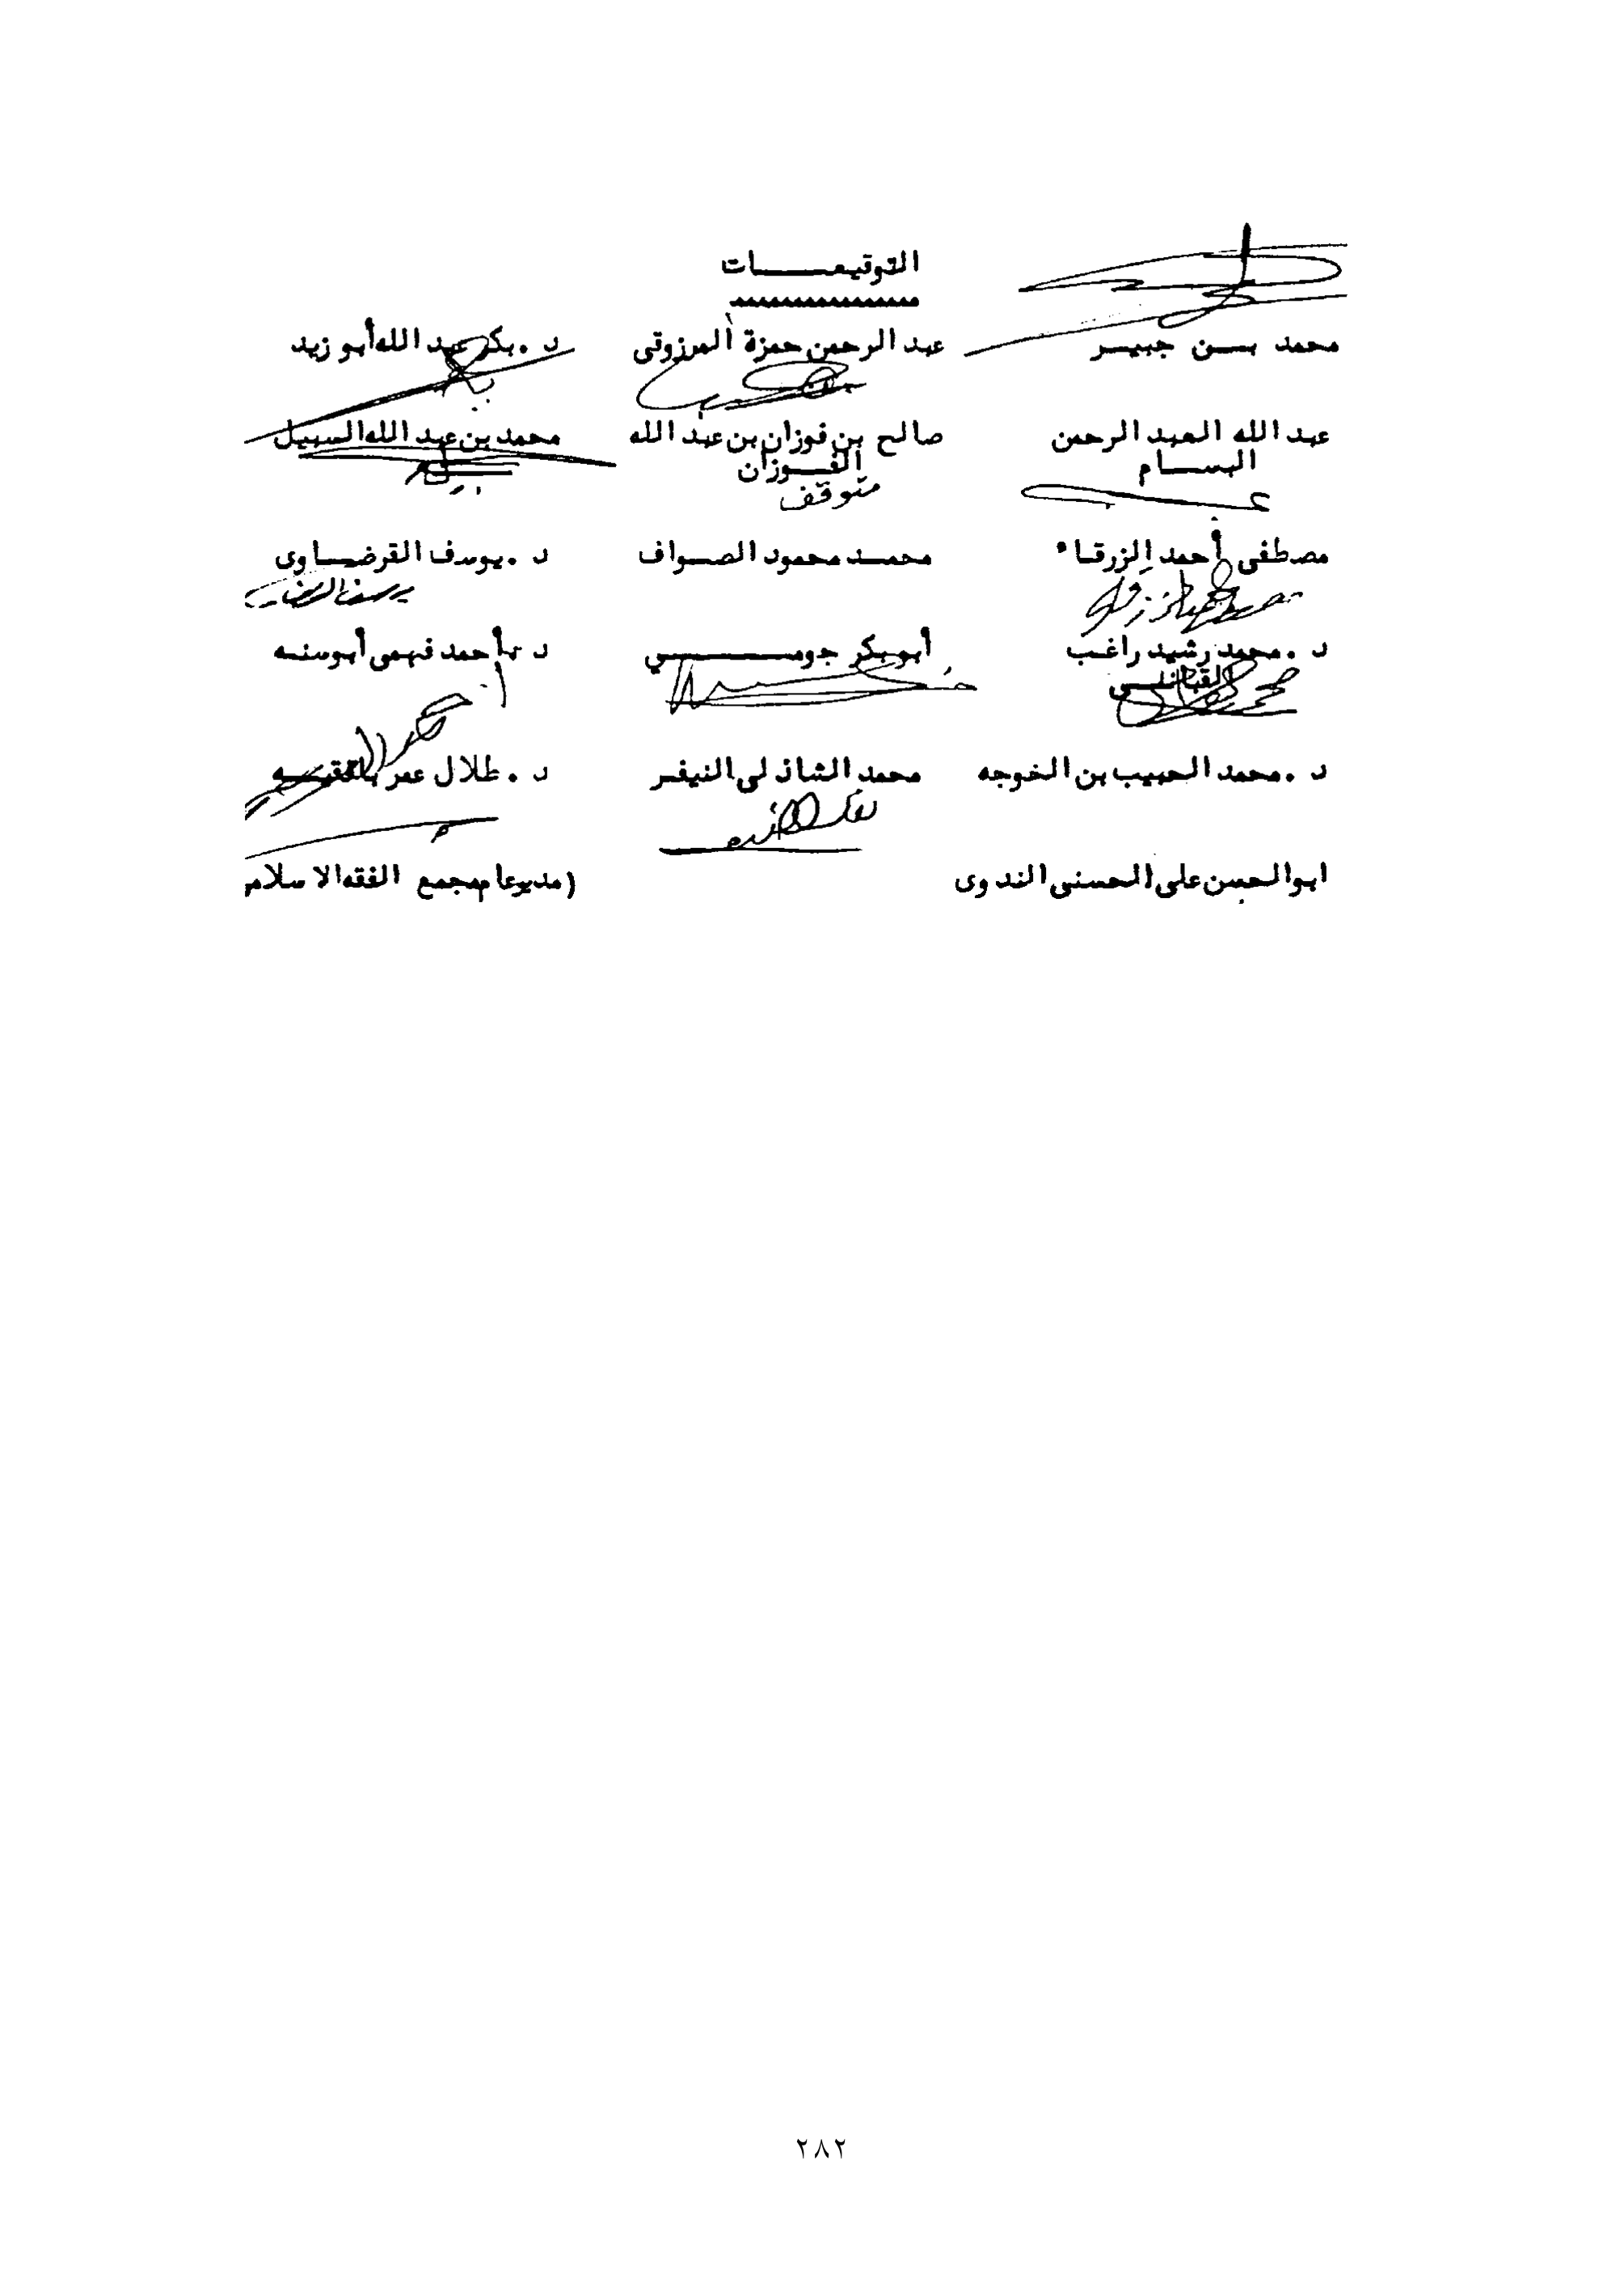 التوقيعات
محمد بن جبير
عبد الرحمن حمزة المرزوقى
د . بكر عبد الله أبو زيد
عبد الله العبد الرحمن
البسام
صالح بن فوزان بن عبد الله
الفوزان
متوقف
محمد بن عبد الله السبيل
مصطفى أحمد الزرقاء
محمد محمود الصواف
د . يوسف القرضاوى
د . محمد رشيد راغب
القبانى
أبو بكر جومي
د . أحمد فهمى أبو سنه
د . محمد الحبيب بن الخوجه
محمد الشاذلى النيفر
د . طلال عمر بافقيه
ابوالحسن على الحسنى الندوى
(مدير عام مجمع الفقه الاسلامى
٢٨٢